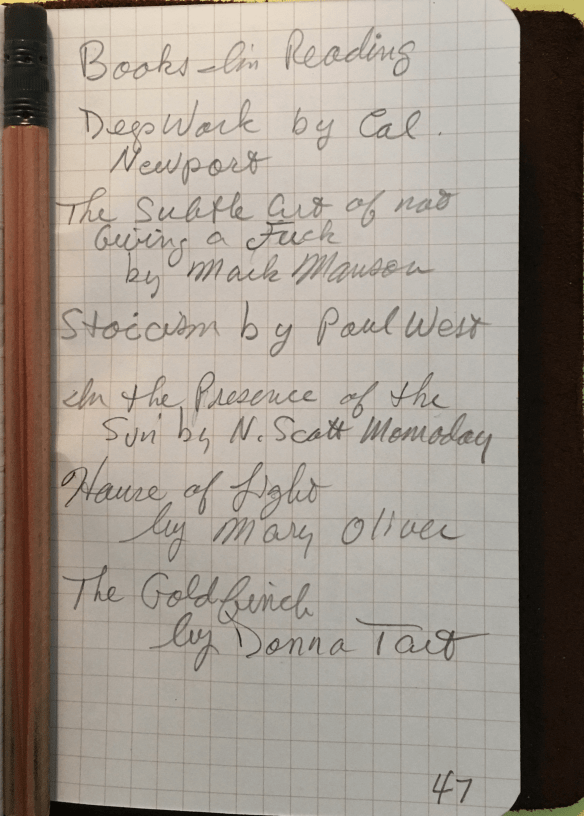 Books I'm Reading
Deep Work by Cal
Newport
The Subtle Art of not
Giving a Fuck
by Mark Manson
Stoicism by Paul West
In the Presence of the
Sun by N. Scott Momaday
House of Light
by Mary Oliver
The Goldfinch
by Donna Tart
47